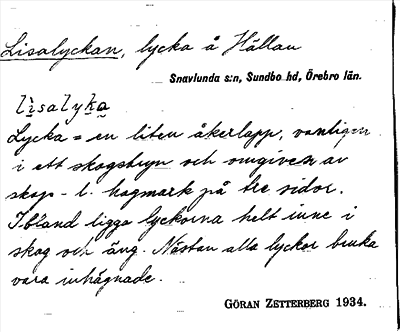 Lisalyckan, lycka å Hällan
Snavlunda s:n, Sundbo hd, Örebro län.
lìsalyka
Lycka = en liten åkerlapp, vanligen
i ett skogsbryn och omgiven av
skogs- l. hagmark på tre sidor.
Ibland ligga lyckorna helt inne i
skog och äng. Nästan alla lyckor bruka
vara inhägnade.
GÖRAN ZETTERBERG 1934.